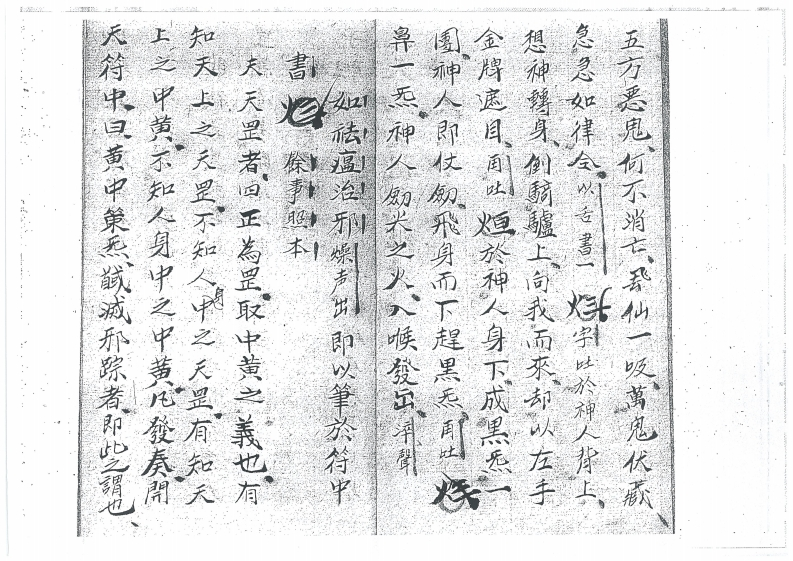 五方惡鬼、何不消亡、飛仙一吸、萬鬼伏藏
急急如律令、以舌書一 字吐於神人背上、
想神轉身、倒騎驢上、向我而來、却以左手
金牌遮目、再吐 烜於神人身下、成黑炁一
團、神人即仗劒飛身而下趕黑炁、再吐
鼻一炁、神人劒米之火、入喉發出、滓聲
如祛瘟治邪燥声出 即以筆於符中
書 餘事照本
夫天罡者、四正為罡、取中黃之義也、有
知天上之天罡、不知人身中之天罡、有知天
上之中黃、不知人身中之中黃、凡發奏、開
天符中、曰黃中策炁、馘滅邪踪者、即此之謂也、